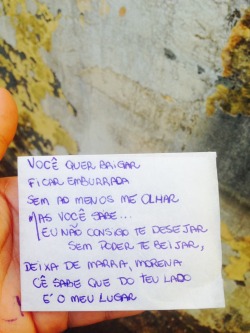 VOCÊ QUER BRIGAR
FICAR EMBURRADA
SEM AO MENOS ME OLHAR
MAS VOCÊ SABE...
EU NÃO CONSIGO TE DESEJAR
SEM PODER TE BEIJAR,
DEIXA DE MARRA, MORENA
CÊ SABE QUE DO TEU LADO
É O MEU LUGAR